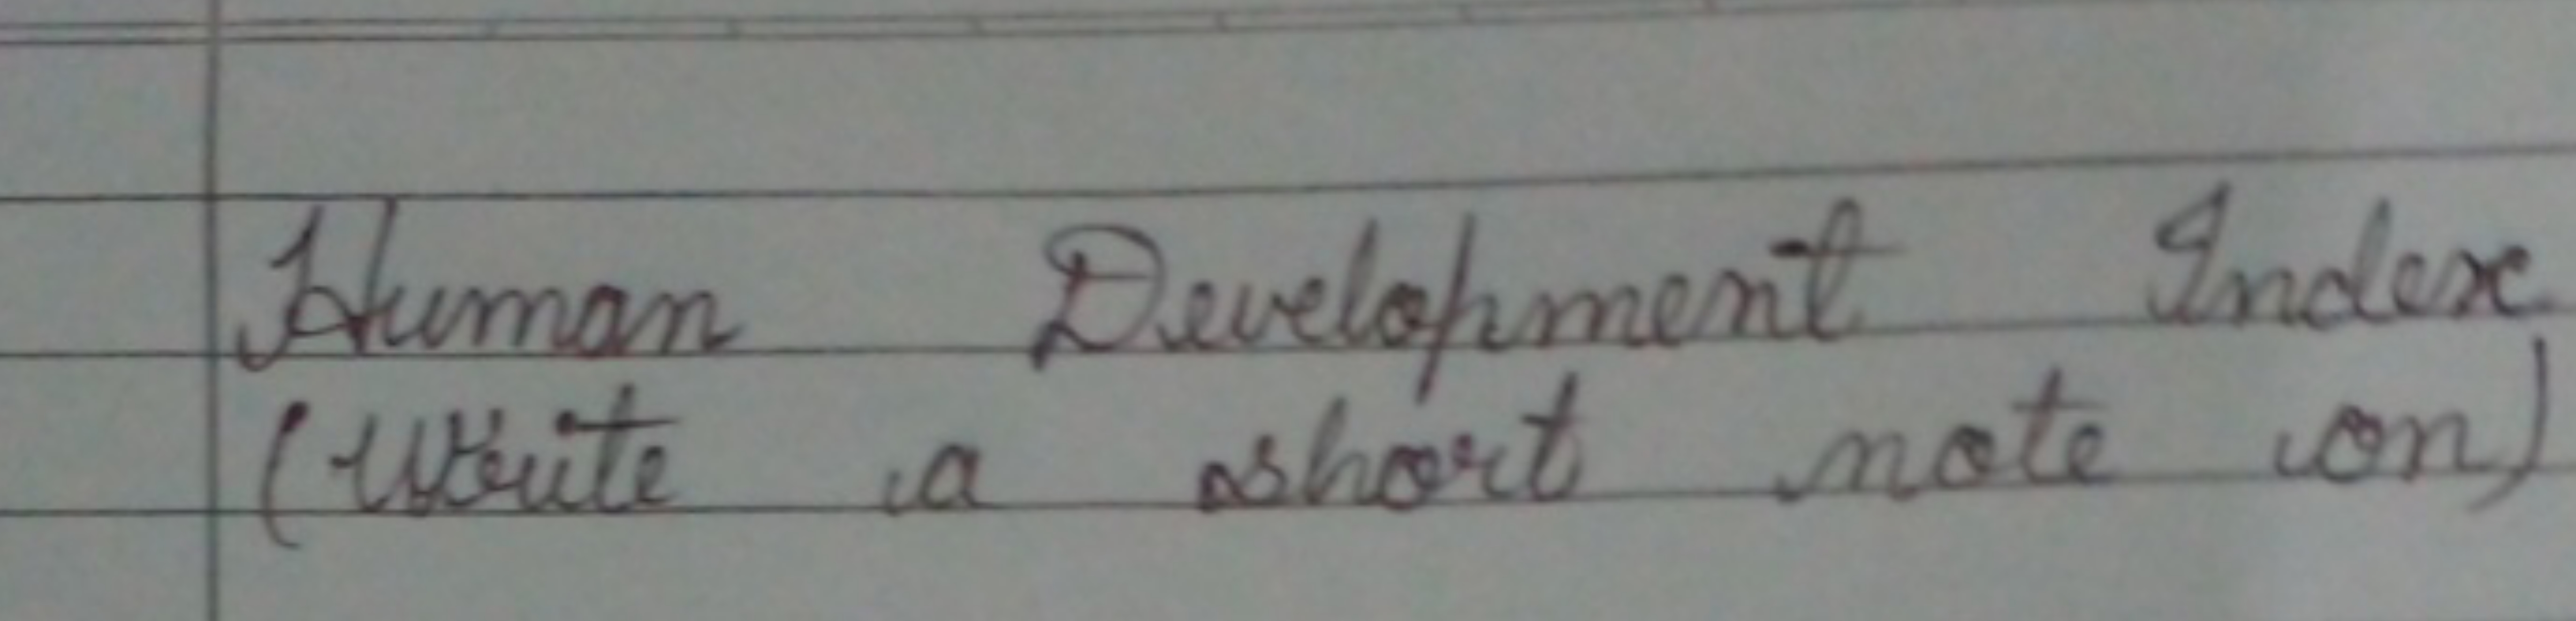 Human Development Index
(Write a short note on)